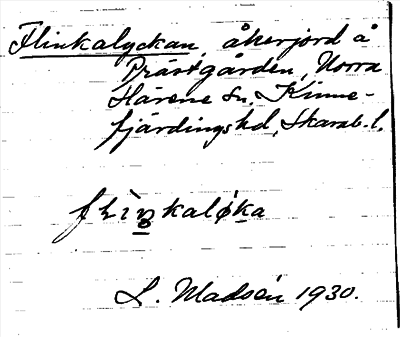 Flinkalyckan, åkerjord å
Prästgården, Norra
Härene sn, Kinne-
fjärdings hd, Skarab. l.
flìŋkalø̀ka
L. Madsén 1930.